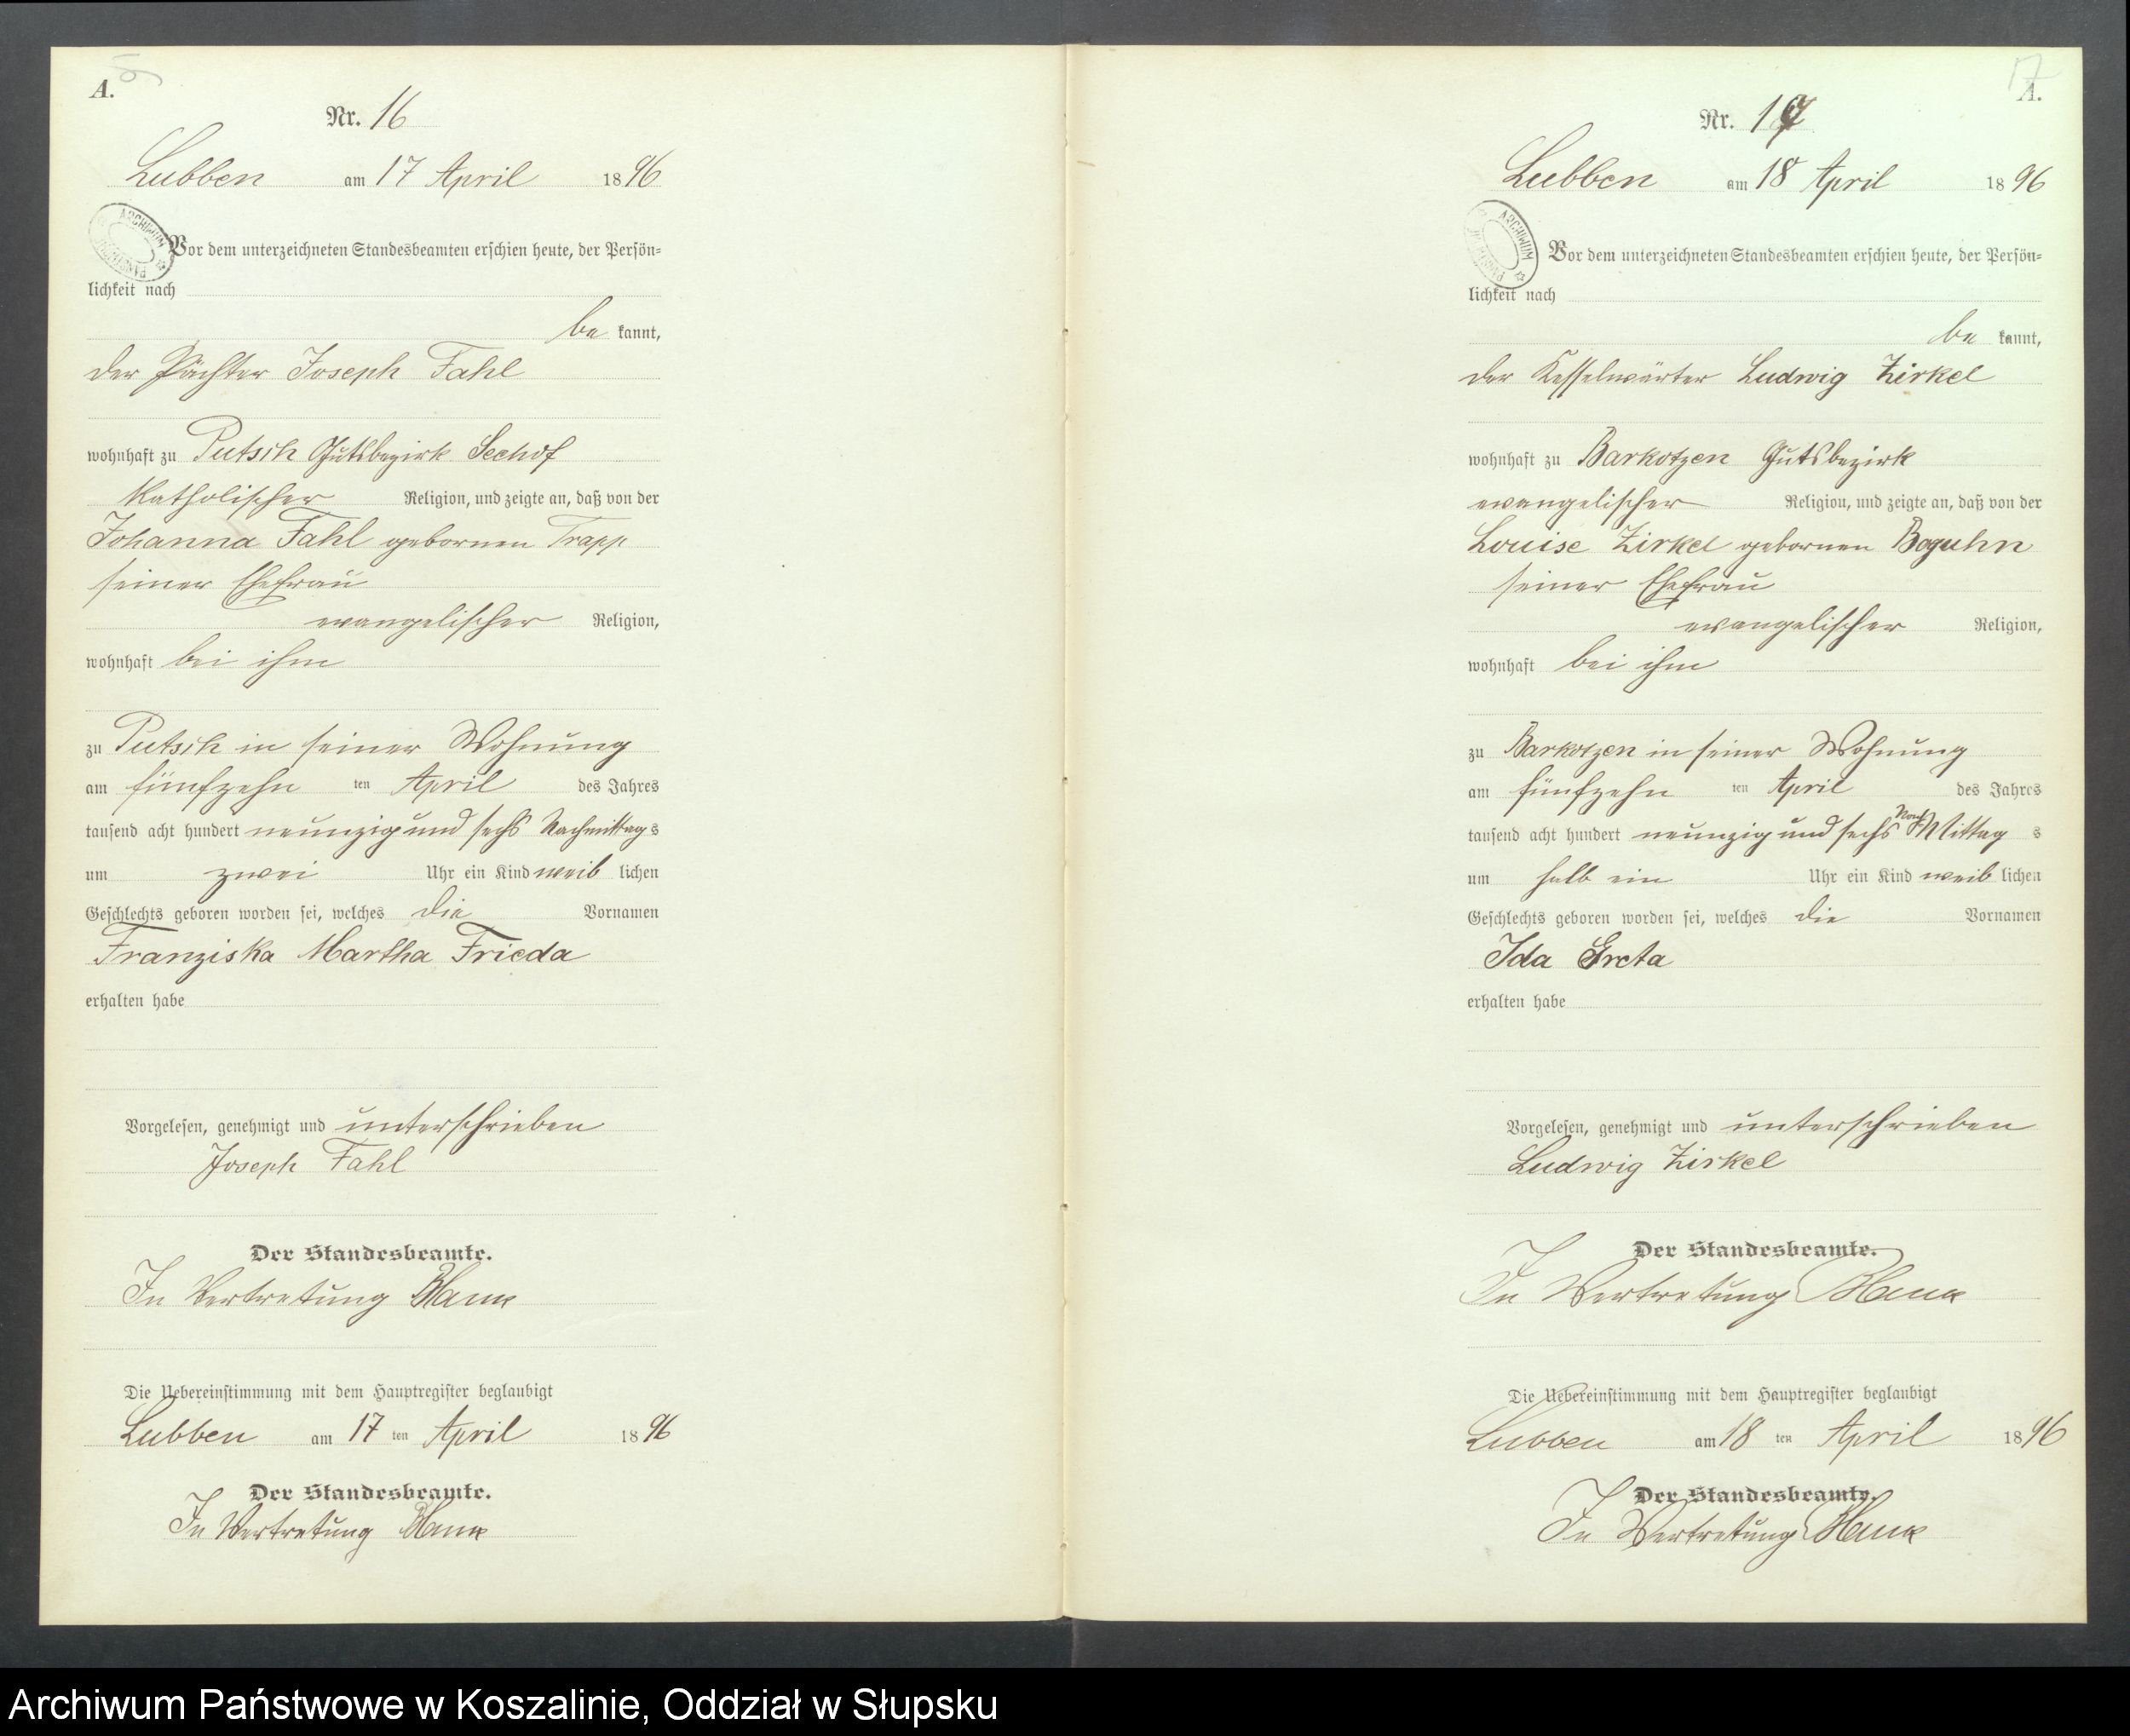 A.
Nr. 16
Lubben am 17 April 1896
ARCHIWUM
Vor dem unterzeichneten Standesbeamten erschien heute, der Persön=
lichkeit nach
be kannt,
der Pächter Joseph Fahl
wohnhaft zu Putsch Gutsbezirk Seehof
katholischer Religion, und zeigte an, daß von der
Johanna Fahl gebornen Trapp
seiner Ehefrau
evangelischer Religion,
wohnhaft bei ihm
zu Putsch in seiner Wohnung
am fünfzehn ten April des Jahres
tausend acht hundert neunzig und sechs Nachmittags
um zwei Uhr ein Kind weib lichen
Geschlechts geboren worden sei, welches die Vornamen
Franziska Martha Frieda
erhalten habe
Vorgelesen, genehmigt und unterschrieben
Joseph Fahl
Der Standesbeamte.
In Vertretung
Die Uebereinstimmung mit dem Hauptregister beglaubigt
Lubben am 17 ten April 1896
Der Standesbeamte.
In Vertretung
17
A.
Nr. 17
Lubben am 18 April 1896
ARCHIWUM
Vor dem unterzeichneten Standesbeamten erschien heute, der Persön=
lichkeit nach
be kannt,
der Kesselwärter Ludwig Zirkel
wohnhaft zu Barkotzen Gutsbezirk
evangelischer Religion, und zeigte an, daß von der
Louise Zirkel gebornen Boguhn
seiner Ehefrau
evangelischer Religion,
wohnhaft bei ihm
zu Barkotzen in seiner Wohnung
am fünfzehn ten April des Jahres
tausend acht hundert neunzig und sechs Nach Mittag s
um halb ein Uhr ein Kind weib lichen
Geschlechts geboren worden sei, welches die Vornamen
Ida Greta
erhalten habe
Vorgelesen, genehmigt und unterschrieben
Ludwig Zirkel
Der Standesbeamte.
In Vertretung
Die Uebereinstimmung mit dem Hauptregister beglaubigt
Lubben am 18 ten April 1896
Der Standesbeamte.
In Vertretung
Archiwum Państwowe w Koszalinie, Oddział w Słupsku